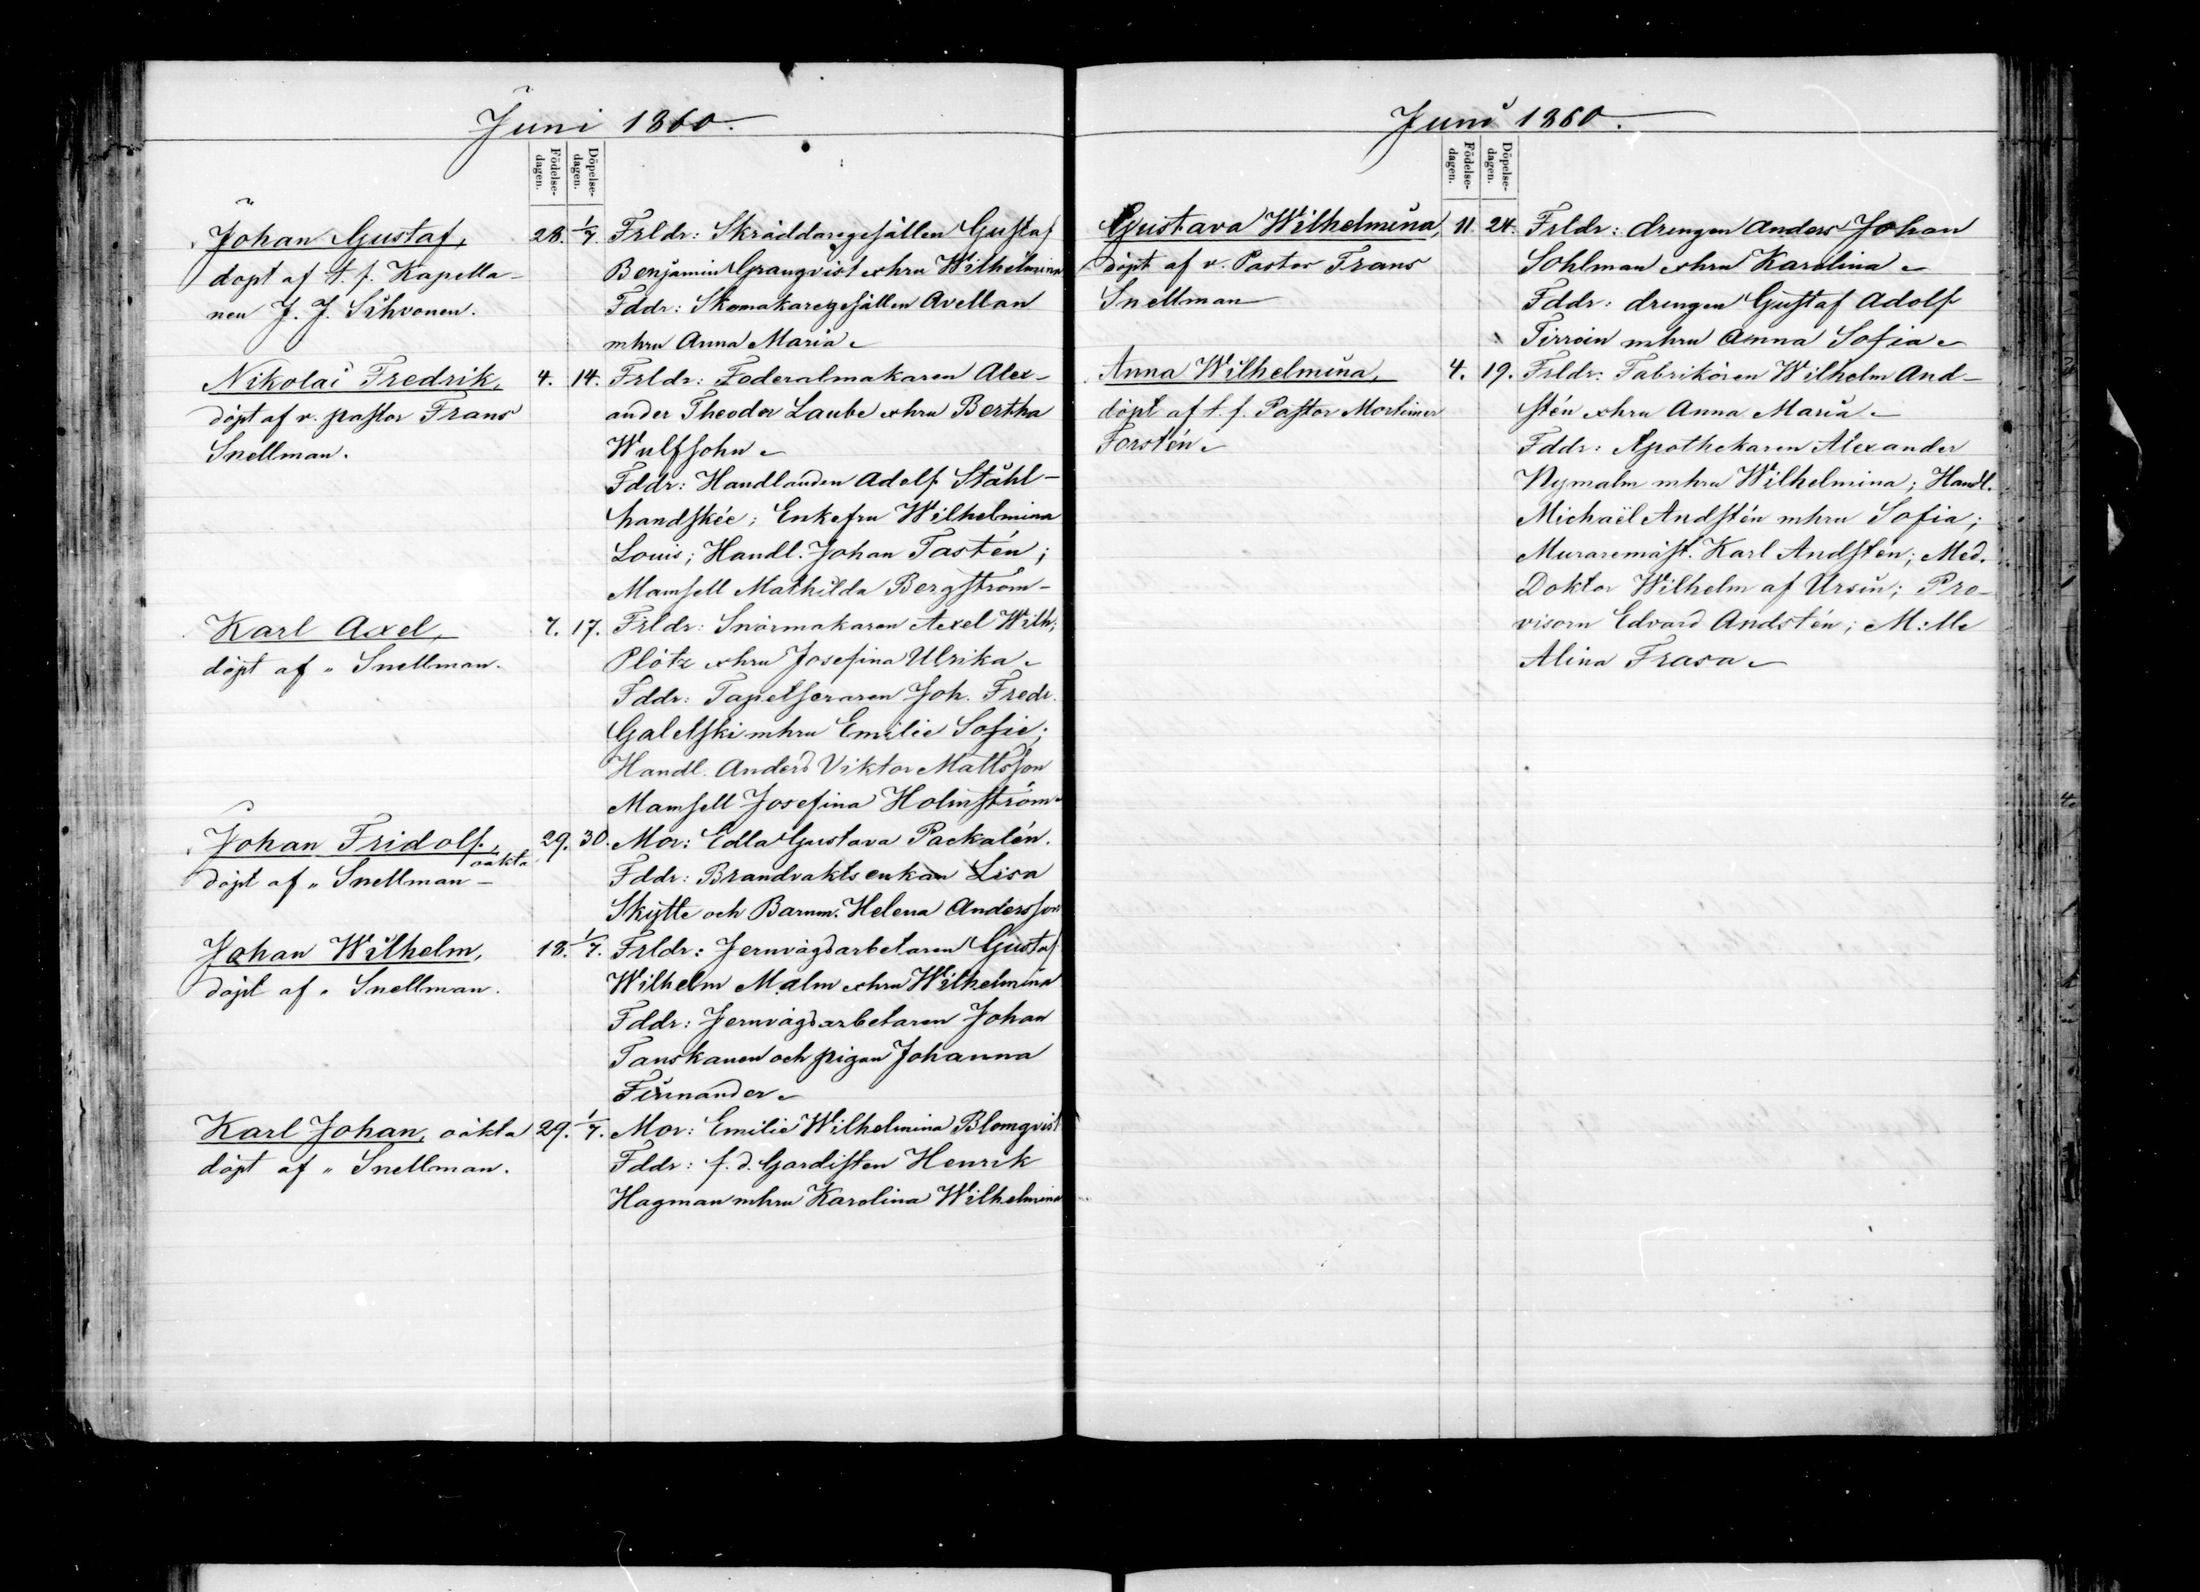 Juni 1860.
Födelse-
dagen.
Döpelse-
dagen.
Johan Gustaf,
döpt af t. f. Kapella-
nen J. J. Sihvonen.
28. 1/7.
Frldr: Skräddaregesällen Gustaf
Benjamin Granqvist o hru Wilhelmina
Fddr: Skomakaregesällen Avellan
m hru Anna Maria
Nikolai Fredrik,
döpt af v. pastor Frans
Snellman.
4. 14.
Frldr: Foderalmakaren Alex-
ander Theodor Laube o hru Bertha
Wulfsohn
Fddr: Handlanden Adolf Stål-
handské; Enkefru Wilhelmina
Louis; Handl. Johan Tastén;
Mamsell Mathilda Bergström
Karl Axel,
döpt af " Snellman.
7. 17.
Frldr: Snörmakaren Axel Wilh.
Plötz o hru Josefina Ulrika
Fddr: Tapetseraren Joh. Fredr.
Galetski m hru Emilie Sofie;
Handl. Anders Viktor Mattsson
Mamsell Josefina Holmström
Johan Fridolf,
oäkta
döpt af " Snellman
29. 30.
Mor: Edla Gustava Packalén.
Fddr: Brandvaktsenkan Lisa
Skytte och Barnm. Helena Andersson
Johan Wilhelm,
döpt af " Snellman.
18. 1/7.
Frldr: Jernvägsarbetaren Gustaf
Wilhelm Malm o hru Wilhelmina
Fddr: Jernvägsarbetaren Johan
Tanskanen och pigan Johanna
Firnander
Karl Johan, oäkta
döpt af " Snellman.
29. 1/7.
Mor: Emilie Wilhelmina Blomqvist
Fddr: f. d. Gardisten Henrik
Hagman m hru Karolina Wilhelmina
Juni 1860.
Födelse-
dagen.
Döpelse-
dagen.
Gustava Wilhelmina,
döpt af v. Pastor Frans
Snellman
11. 24.
Frldr: drengen Anders Johan
Sohlman o hru Karolina
Fddr: drengen Gustaf Adolf
Tirroin m hru Anna Sofia
Anna Wilhelmina,
döpt af t. f. Pastor Mortimer
Forstén
4. 19.
Frldr: Fabrikören Wilhelm And-
stén o hru Anna Maria
Fddr: Apothekaren Alexander
Nymalm m hru Wilhelmina; Handl.
Michaël Andstén m hru Sofia;
Muraremäst. Karl Andstén; Med.
Doktor Wilhelm af Ursin; Pro-
visorn Edvard Andstén; M:lle
Alina Frasa